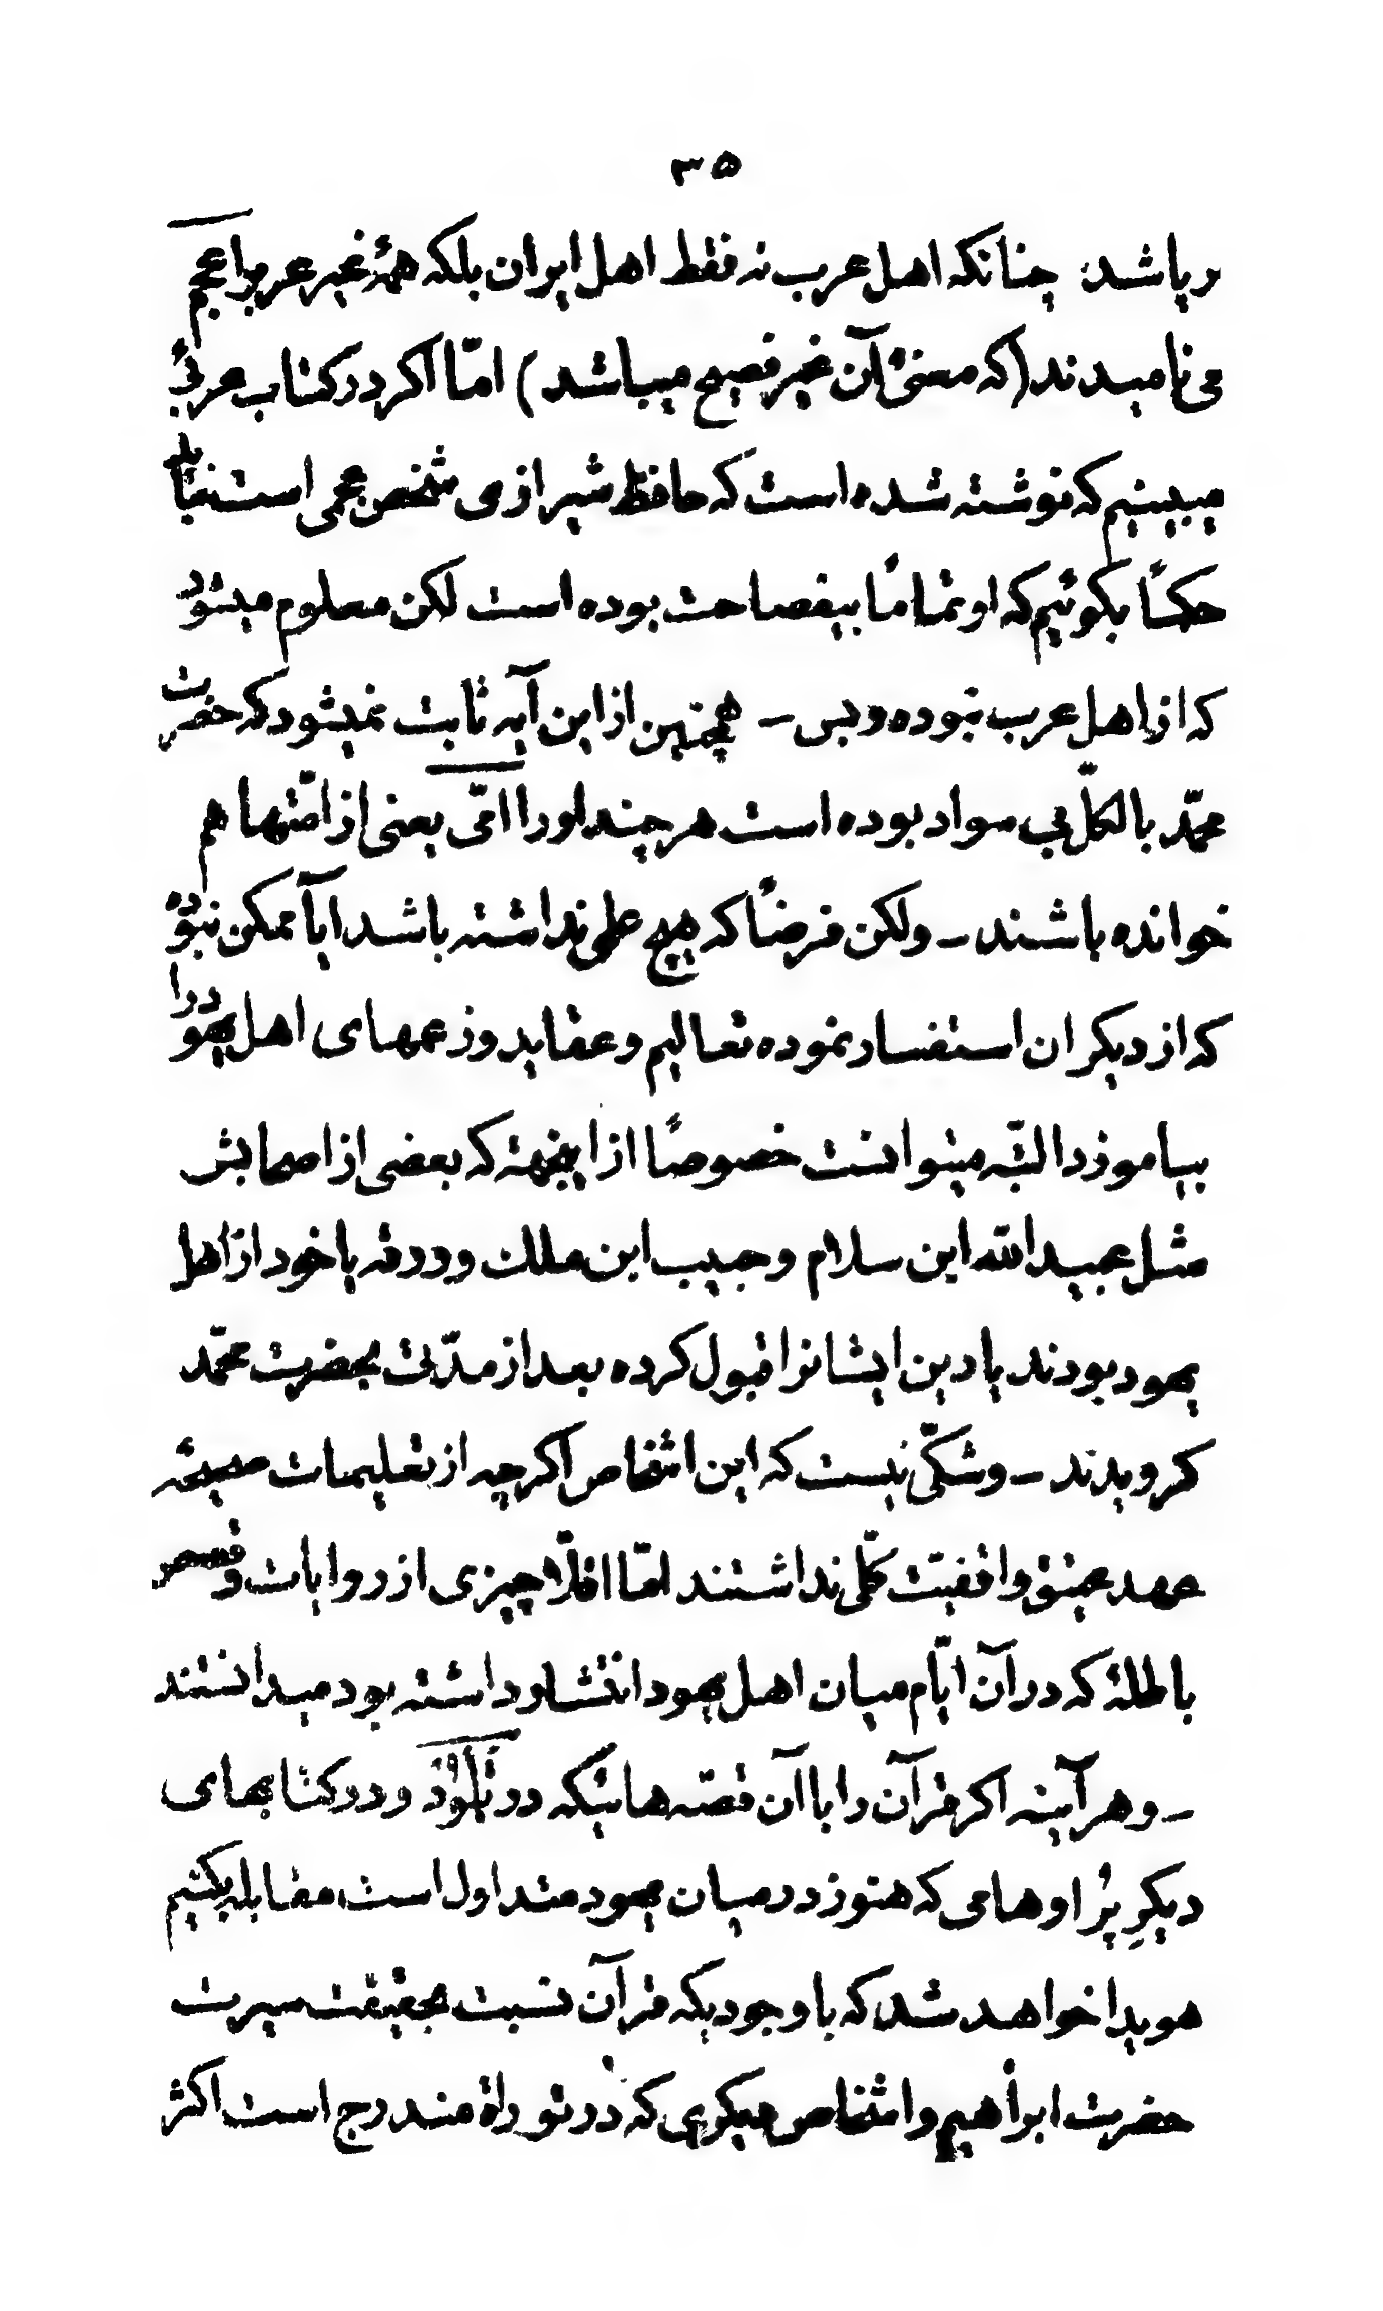 ۳۵
ر باشد، چنانکه اهل عرب نه فقط اهل ایران بلکه همهٔ غیر عرب را عجم
می نامیدند (که معنیٔ آن غیر فصیح میباشد) امّا اکر در کتاب عربیٔ
میبینیم که نوشته شده است که حافظ شیرازی شخص عجمی است نباید
حکماً بکوئیم که او تماماً بیفصاحت بوده است لکن معلوم میشود
که از اهل عرب نبوده و بس – همچنین از این آیه ثابت نمیشود که حضرت
محمّد بالکلّ بی سواد بوده است هر چند او را امّی یعنی از امّتها هم
خوانده باشند – ولکن فرضاً که هیچ علمی نداشته باشد ایاٰ ممکن نبوده
که از دیکران استفسار نموده تعالیم و عقاید و زعمهای اهل یهود را
بیاموزد البتّه میتوانست خصوصاً از اینجهة که بعضی از اصحابش
مثل عبید الله ابن سلام و حبیب ابن ملک و ورقه یا خود از اهل
یهود بودند یا دین ایشانرا قبول کرده بعد از مدّتی بحضرت محمّد
کرویدند – و شکّی نیست که این اشخاص اکرچه از تعلیمات صحیحهٔ
عهد عتیق واقفیّت کلّی نداشتند امّا اقلّاً چیزی از روایات و قصص
باطلهٔ که در آن ایّام میان اهل یهود انتشار داشته بود میدانستند
– و هر آینه اکر قرآن را با آن قصّه هائیکه در تَلْمُوْدْ و در کتابهای
دیکرِ پُر اوهامی که هنوز در میان یهود متداول است مقابله بکنیم
هویدا خواهد شد که با وجودیکه قرآن نسبت بحقیقت سیرت
حضرت ابراهیم و اشخاص دیکری که در توراة مندرج است اکثر